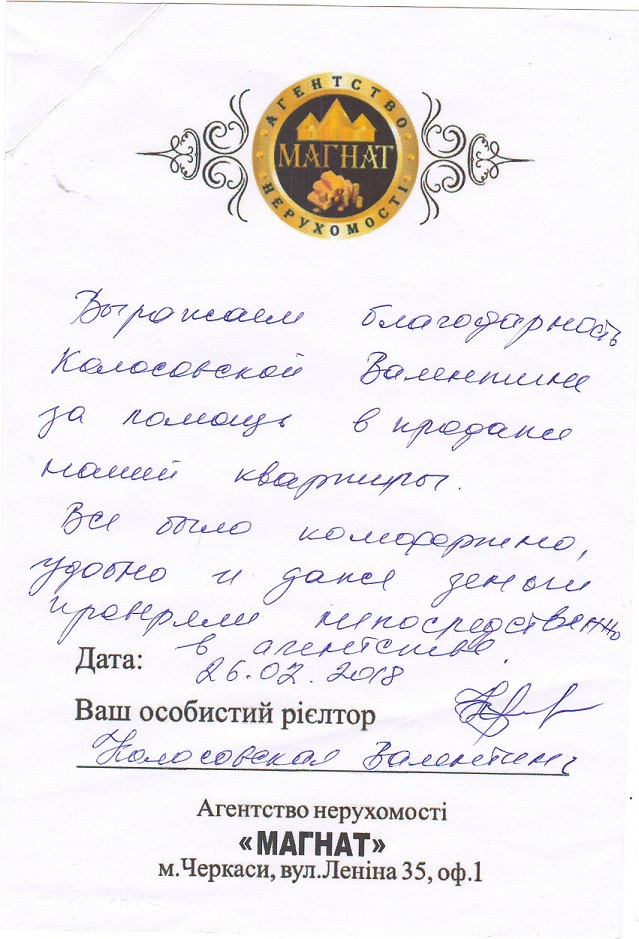 АГЕНТСТВО
МАГНАТ
НЕРУХОМОСТІ
Выражаем благодарность
Колосовской Валентине
за помощь в продаже
нашей квартиры.
Все было комфортно,
удобно и даже деньги
проверяли непосредственно
в агентстве.
Дата: 26.02.2018
Ваш особистий рієлтор
Колосовская Валентина
Агентство нерухомості
«МАГНАТ»
м.Черкаси, вул.Леніна 35, оф.1